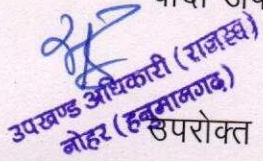 उपखण्ड अधिकारी (राजस्व)
नोहर (हनुमानगढ़)
उपरोक्त